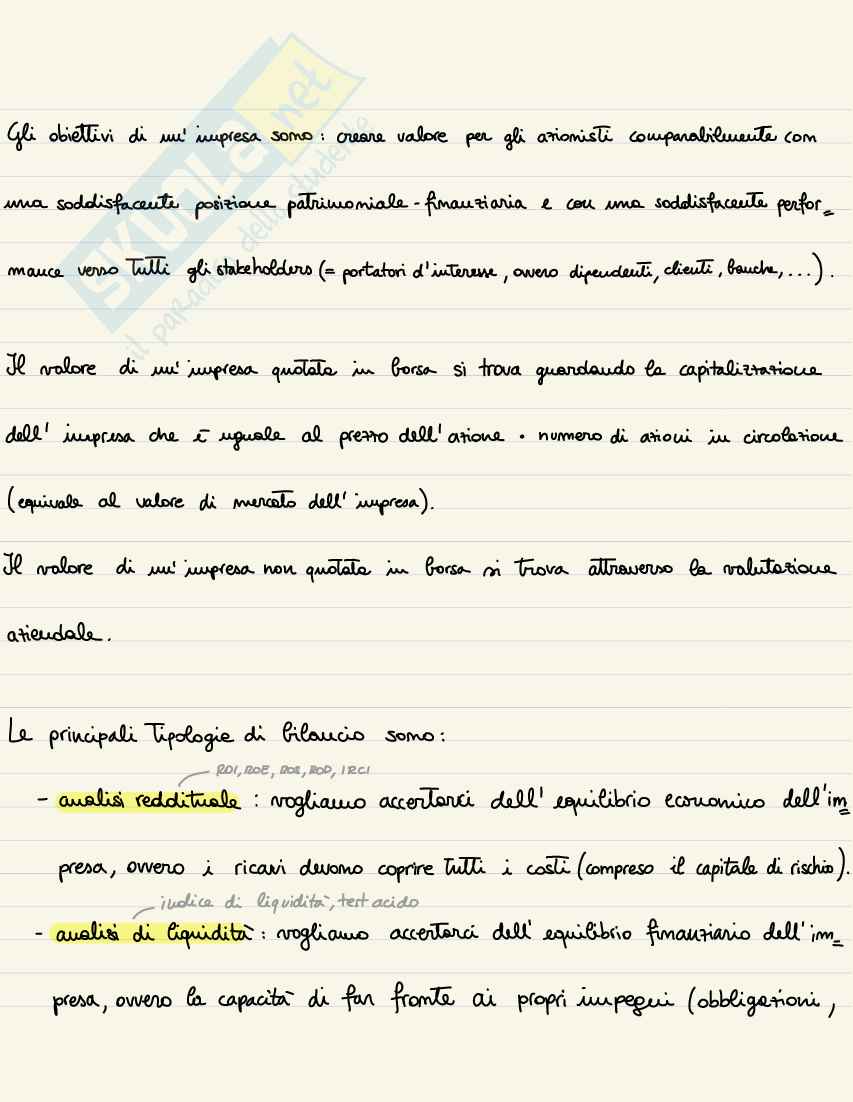 SKUOLA.net
il paradiso dello studente
Gli obiettivi di un'impresa sono: creare valore per gli azionisti comparabilmente con
una soddisfacente posizione patrimoniale-finanziaria e con una soddisfacente perfor=
mance verso tutti gli stakeholders (= portatori d'interesse, ovvero dipendenti, clienti, banche, ...).
Il valore di un'impresa quotata in borsa si trova guardando la capitalizzazione
dell'impresa che è uguale al prezzo dell'azione • numero di azioni in circolazione
(equivale al valore di mercato dell'impresa).
Il valore di un'impresa non quotata in borsa si trova attraverso la valutazione
aziendale.
Le principali tipologie di bilancio sono:
ROI, ROE, ROS, ROD, IRCI
- analisi reddituale: vogliamo accertarci dell'equilibrio economico dell'im=
presa, ovvero i ricavi devono coprire tutti i costi (compreso il capitale di rischio).
indice di liquidità, test acido
- analisi di liquidità: vogliamo accertarci dell'equilibrio finanziario dell'im=
presa, ovvero la capacità di far fronte ai propri impegni (obbligazioni,